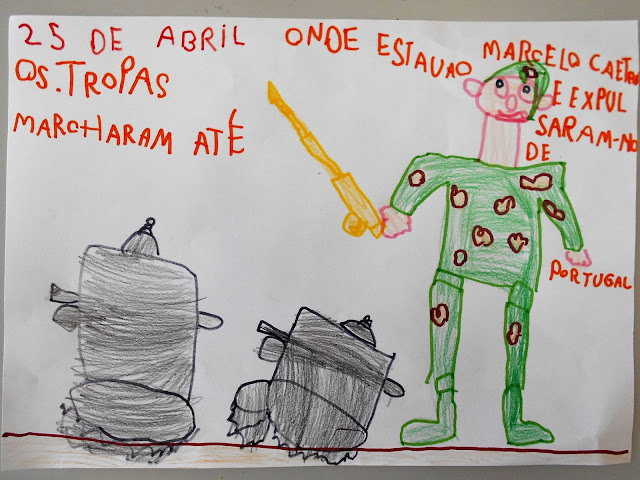 25 DE ABRIL
OS.TROPAS
MARCHARAM ATÉ
ONDE ESTAVAO
MARCELO CAETANO
E EXPUL
SARAM-NO
DE
PORTUGAL